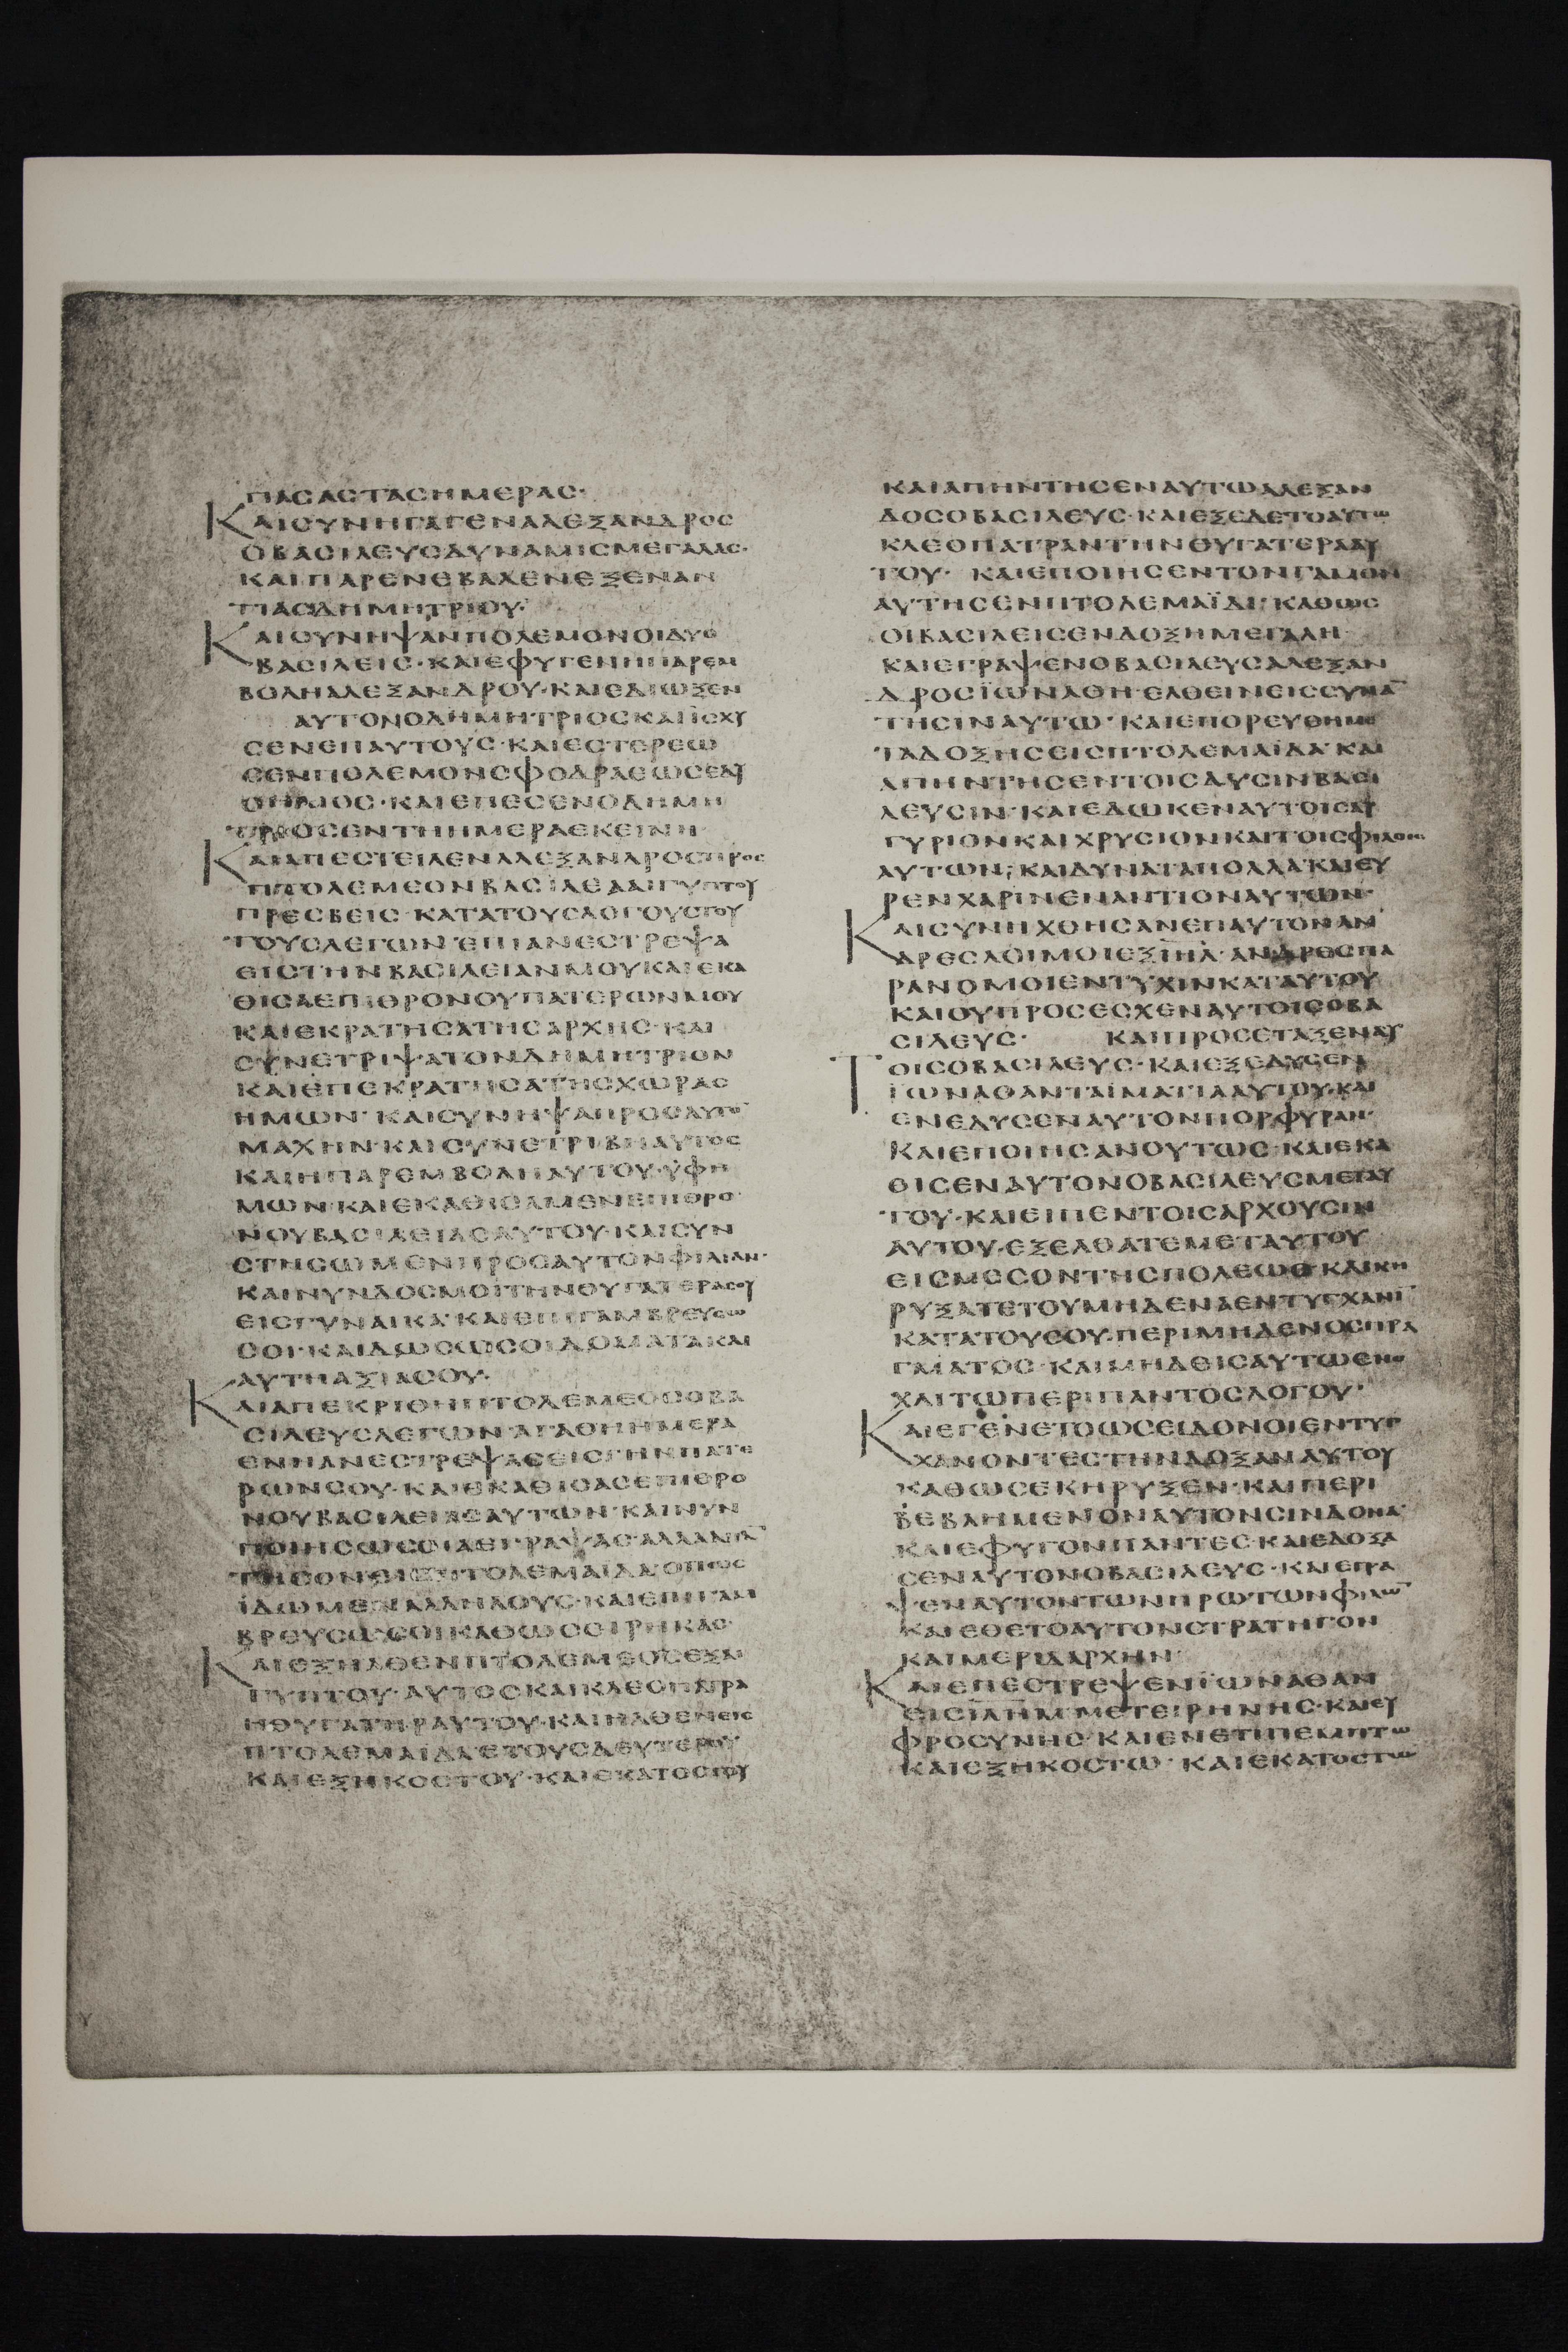 ΠΑϹΑϹΤΑϹΗΜΕΡΑϹ·
ΚΑΙϹΥΝΗΓΑΓΕΝΑΛΕΞΑΝΔΡΟϹ
ΟΒΑϹΙΛΕΥϹΔΥΝΑΜΙϹΜΕΓΑΛΑϹ·
ΚΑΙΠΑΡΕΝΕΒΑΛΕΝΕΞΕΝΑΝ
ΤΙΑϹΔΗΜΗΤΡΙΟΥ·
ΚΑΙϹΥΝΗΨΑΝΠΟΛΕΜΟΝΟΙΔΥΟ
ΒΑϹΙΛΕΙϹ·ΚΑΙΕΦΥΓΕΝΗΠΑΡΕΜ
ΒΟΛΗΑΛΕΞΑΝΔΡΟΥ·ΚΑΙΕΔΙΩΞΕΝ
ΑΥΤΟΝΟΔΗΜΗΤΡΙΟϹΚΑΙΪϹΧΥ
ϹΕΝΕΠΑΥΤΟΥϹ·ΚΑΙΕϹΤΕΡΕΩ
ϹΕΝΠΟΛΕΜΟΝϹΦΟΔΡΑΕΩϹΕΔΥ
ΟΗΛΙΟϹ·ΚΑΙΕΠΕϹΕΝΟΔΗΜΗ
ΤΡΙΟϹΕΝΤΗΗΜΕΡΑΕΚΕΙΝΗ·
ΚΑΙΑΠΕϹΤΕΙΛΕΝΑΛΕΞΑΝΔΡΟϹΠΡΟϹ
ΠΤΟΛΕΜΕΟΝΒΑϹΙΛΕΑΑΙΓΥΠΤΟΥ
ΠΡΕϹΒΕΙϹ·ΚΑΤΑΤΟΥϹΛΟΓΟΥϹΤΟΥ
ΤΟΥϹΛΕΓΩΝ·ΕΠΙΑΝΕϹΤΡΕΨΑ
ΕΙϹΤΗΝΒΑϹΙΛΕΙΑΝΜΟΥΚΑΙΕΚΑ
ΘΙϹΑΕΠΙΘΡΟΝΟΥΠΑΤΕΡΩΝΜΟΥ
ΚΑΙΕΚΡΑΤΗϹΑΤΗϹΑΡΧΗϹ·ΚΑΙ
ϹΥΝΕΤΡΙΨΑΤΟΝΔΗΜΗΤΡΙΟΝ
ΚΑΙΕΠΕΚΡΑΤΗϹΑΤΗϹΧΩΡΑϹ
ΗΜΩΝ·ΚΑΙϹΥΝΗΨΑΠΡΟϹΑΥΤΟ̅
ΜΑΧΗΝ·ΚΑΙϹΥΝΕΤΡΙΒΗΑΥΤΟϹ
ΚΑΙΗΠΑΡΕΜΒΟΛΗΑΥΤΟΥ·ΥΦΗ
ΜΩΝ·ΚΑΙΕΚΑΘΙϹΑΜΕΝΕΠΙΘΡΟ
ΝΟΥΒΑϹΙΛΕΙΑϹΑΥΤΟΥ·ΚΑΙϹΥΝ
ϹΤΗϹΩΜΕΝΠΡΟϹΑΥΤΟΝΦΙΛΙΑΝ·
ΚΑΙΝΥΝΔΟϹΜΟΙΤΗΝΘΥΓΑΤΕΡΑϹΟΥ
ΕΙϹΓΥΝΑΙΚΑ·ΚΑΙΕΠΙΓΑΜΒΡΕΥϹΩ
ϹΟΙ·ΚΑΙΔΩϹΩϹΟΙΔΟΜΑΤΑΚΑΙ
ΑΥΤΗΑΞΙΑϹΟΥ·
ΚΑΙΑΠΕΚΡΙΘΗΠΤΟΛΕΜΕΟϹΟΒΑ
ϹΙΛΕΥϹΛΕΓΩΝ·ΑΓΑΘΗΗΜΕΡΑ
ΕΝΗΑΝΕϹΤΡΕΨΑϹΕΙϹΓΗΝΠΑΤΕ
ΡΩΝϹΟΥ·ΚΑΙΕΚΑΘΙϹΑϹΕΠΙΘΡΟ
ΝΟΥΒΑϹΙΛΕΙΑϹΑΥΤΩΝ·ΚΑΙΝΥΝ
ΠΟΙΗϹΩϹΟΙΑΕΓΡΑΨΑϹ·ΑΛΛΑΠΑ̅
ΤΗϹΟΝΕΙϹΠΤΟΛΕΜΑΪΔΑΟΠΩϹ
ΪΔΩΜΕΝΑΛΛΗΛΟΥϹ·ΚΑΙΕΠΙΓΑΜ
ΒΡΕΥϹΩϹΟΙΚΑΘΩϹϹΟΙΡΗΚΑϹ·
ΚΑΙΕΞΗΛΘΕΝΠΤΟΛΕΜΕΟϹΕΞΑΙ
ΓΥΠΤΟΥ·ΑΥΤΟϹΚΑΙΚΛΕΟΠΑΤΡΑ
ΗΘΥΓΑΤΗΡΑΥΤΟΥ·ΚΑΙΗΛΘΕΝΕΙϹ
ΠΤΟΛΕΜΑΪΔΑΕΤΟΥϹΔΕΥΤΕΡΟΥ
ΚΑΙΕΞΗΚΟϹΤΟΥ·ΚΑΙΕΚΑΤΟϹΤΟΥ
ΚΑΙΑΠΗΝΤΗϹΕΝΑΥΤΩΑΛΕΞΑΝ
ΔΟϹΟΒΑϹΙΛΕΥϹ·ΚΑΙΕΞΕΔΕΤΟΑΥΤΩ
ΚΛΕΟΠΑΤΡΑΝΤΗΝΘΥΓΑΤΕΡΑΑΥ
ΤΟΥ· ΚΑΙΕΠΟΙΗϹΕΝΤΟΝΓΑΜΟΝ
ΑΥΤΗϹΕΝΠΤΟΛΕΜΑΪΔΙ·ΚΑΘΩϹ
ΟΙΒΑϹΙΛΕΙϹΕΝΔΟΞΗΜΕΓΑΛΗ·
ΚΑΙΕΓΡΑΨΕΝΟΒΑϹΙΛΕΥϹΑΛΕΞΑΝ
ΔΡΟϹΪΩΝΑΘΗ·ΕΛΘΕΙΝΕΙϹϹΥΝΑ̅
ΤΗϹΙΝΑΥΤΩ·ΚΑΙΕΠΟΡΕΥΘΗΜΕ
ΤΑΔΟΞΗϹΕΙϹΠΤΟΛΕΜΑΪΔΑ·ΚΑΙ
ΑΠΗΝΤΗϹΕΝΤΟΙϹΔΥϹΙΝΒΑϹΙ
ΛΕΥϹΙΝ·ΚΑΙΕΔΩΚΕΝΑΥΤΟΙϹΑΡ
ΓΥΡΙΟΝΚΑΙΧΡΥϹΙΟΝΚΑΙΤΟΙϹΦΙΛΟΙϹ
ΑΥΤΩΝ·ΚΑΙΔΥΝΑΤΑΠΟΛΛΑ·ΚΑΙΕΥ
ΡΕΝΧΑΡΙΝΕΝΑΝΤΙΟΝΑΥΤΩΝ·
ΚΑΙϹΥΝΗΧΘΗϹΑΝΕΠΑΥΤΟΝΑΝ
ΔΡΕϹΛΟΙΜΟΙΕΞΙ̅Η̅Λ̅·ΑΝΔΡΕϹΠΑ
ΡΑΝΟΜΟΙΕΝΤΥΧΙΝΚΑΤΑΥΤΟΥ
ΚΑΙΟΥΠΡΟϹΕϹΧΕΝΑΥΤΟΙϹΟΒΑ
ϹΙΛΕΥϹ· ΚΑΙΠΡΟϹΕΤΑΞΕΝΑΥ
ΤΟΙϹΟΒΑϹΙΛΕΥϹ·ΚΑΙΕΞΕΔΥϹΕΝ
ΪΩΝΑΘΑΝΤΑΪΜΑΤΙΑΑΥΤΟΥ·ΚΑΙ
ΕΝΕΔΥϹΕΝΑΥΤΟΝΠΟΡΦΥΡΑΝ·
ΚΑΙΕΠΟΙΗϹΑΝΟΥΤΩϹ·ΚΑΙΕΚΑ
ΘΙϹΕΝΑΥΤΟΝΟΒΑϹΙΛΕΥϹΜΕΤΑΥ
ΤΟΥ·ΚΑΙΕΙΠΕΝΤΟΙϹΑΡΧΟΥϹΙΝ
ΑΥΤΟΥ·ΕΞΕΛΘΑΤΕΜΕΤΑΥΤΟΥ
ΕΙϹΜΕϹΟΝΤΗϹΠΟΛΕΩϹΚΑΙΚΗ
ΡΥΞΑΤΕΤΟΥΜΗΔΕΝΑΕΝΤΥΓΧΑΝΙ̅
ΚΑΤΑΤΟΥϹΟΥ·ΠΕΡΙΜΗΔΕΝΟϹΠΡΑ
ΓΜΑΤΟϹ·ΚΑΙΜΗΔΘΙϹΑΥΤΩΕΝΟ
ΧΛΙΤΩΠΕΡΙΠΑΝΤΟϹΛΟΓΟΥ·
ΚΑΙΕΓΕΝΕΤΟΩϹΕΙΔΟΝΟΙΕΝΤΥΓ
ΧΑΝΟΝΤΕϹΤΗΝΔΟΞΑΝΑΥΤΟΥ
ΚΑΘΩϹΕΚΗΡΥΞΕΝ·ΚΑΙΠΕΡΙ
ΒΕΒΛΗΜΕΝΟΝΑΥΤΟΝϹΙΝΔΟΝΑ
ΚΑΙΕΦΥΓΟΝΠΑΝΤΕϹ·ΚΑΙΕΔΟΞΑ
ϹΕΝΑΥΤΟΝΟΒΑϹΙΛΕΥϹ·ΚΑΙΕΓΡΑ
ΨΕΝΑΥΤΟΝΤΩΝΠΡΩΤΩΝΦΙΛΩ̅
ΚΑΙΕΘΕΤΟΑΥΤΟΝϹΤΡΑΤΗΓΟΝ
ΚΑΙΜΕΡΙΔΑΡΧΗΝ·
ΚΑΙΕΠΕϹΤΡΕΨΕΝΪΩΝΑΘΑΝ
ΕΙϹΙ̅Λ̅Η̅Μ̅ΜΕΤΕΙΡΗΝΗϹ·ΚΑΙΕΥ
ΦΡΟϹΥΝΗϹ·ΚΑΙΕΝΕΤΙΠΕΜΠΤΩ
ΚΑΙΕΞΗΚΟϹΤΩ·ΚΑΙΕΚΑΤΟϹΤΩ